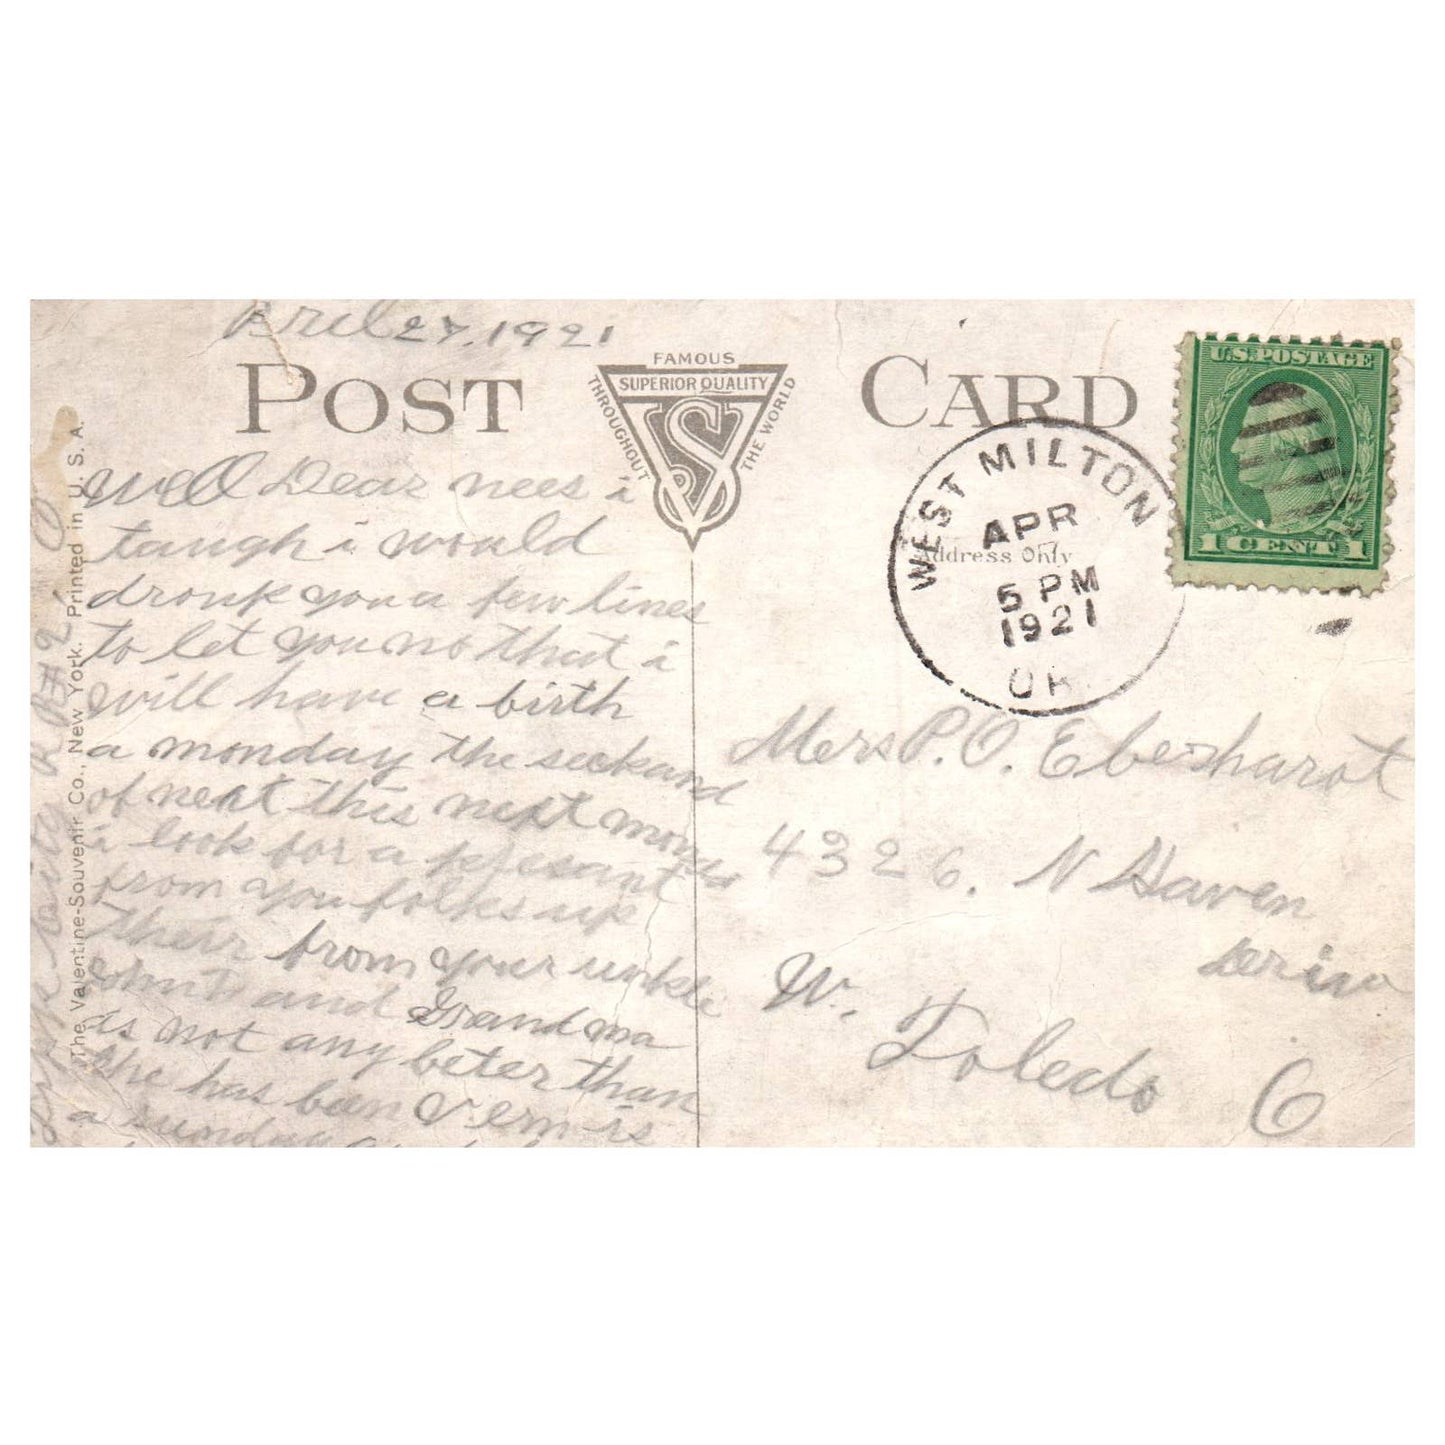 Aprile 27, 1921
POST CARD
FAMOUS
SUPERIOR QUALITY
THROUGHOUT
THE WORLD
VS
Well Dear nees i
taugh i would
dronp you a few lines
to let you no that i
will have a birth
a monday the seckand
of next this next
i look for a presant
from you folks up
their from your unkle
and Grandma
is not any beter than
she has been Vern is
a sunday
The Valentine-Souvenir Co., New York. Printed in U. S. A.
R#2, O
WEST MILTON
APR
5 PM
1921
OH
Address Only
U.S. POSTAGE
1 CENT 1
Mers P. O. Eberharot
4326. N Haven
W. Toledo O